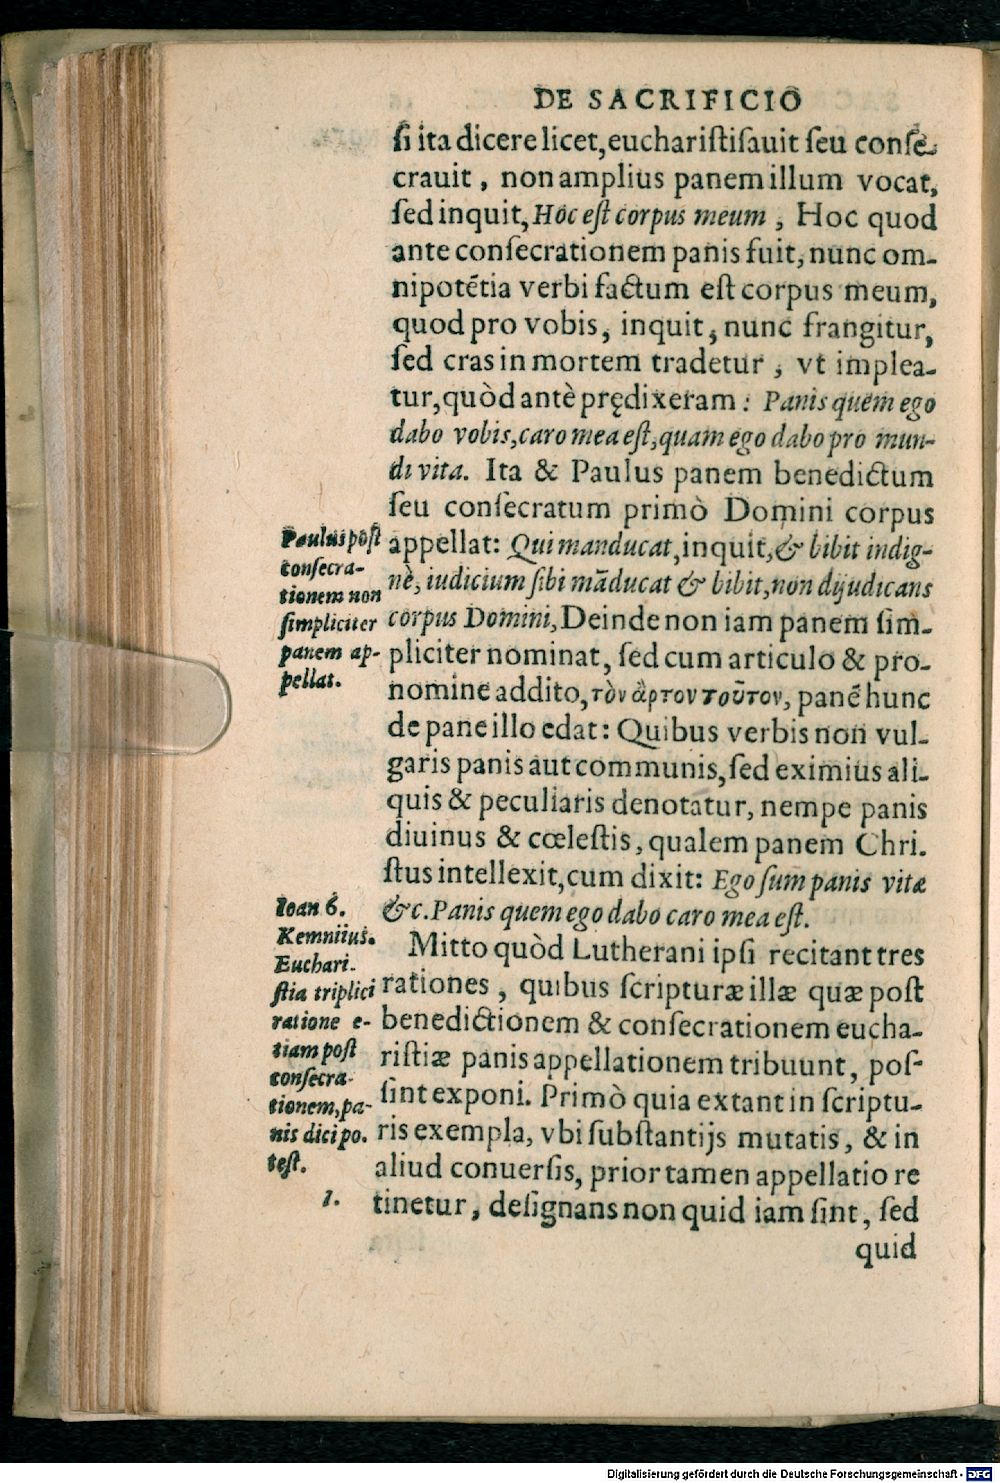 DE SACRIFICIO
ſi ita dicere licet, euchariſtiſauit ſeu conſe-
crauit, non amplius panem illum vocat,
ſed inquit, Hoc eſt corpus meum, Hoc quod
ante conſecrationem panis fuit, nunc om-
nipotētia verbi factum eſt corpus meum,
quod pro vobis, inquit, nunc frangitur,
ſed cras in mortem tradetur, vt implea-
tur, quòd antè prędixeram: Panis quem ego
dabo vobis, caro mea eſt, quam ego dabo pro mun-
di vita. Ita & Paulus panem benedictum
ſeu conſecratum primò Domini corpus
appellat: Qui manducat, inquit, & bibit indig-
nè, iudicium ſibi māducat & bibit, non dijudicans
corpus Domini, Deinde non iam panem ſim-
pliciter nominat, ſed cum articulo & pro-
nomine addito, τὸν ἄρτον τοῦτον, panē hunc
de pane illo edat: Quibus verbis non vul-
garis panis aut communis, ſed eximius ali-
quis & peculiaris denotatur, nempe panis
diuinus & cœleſtis, qualem panem Chri-
ſtus intellexit, cum dixit: Ego ſum panis vitæ
&c. Panis quem ego dabo caro mea eſt.
Mitto quòd Lutherani ipſi recitant tres
rationes, quibus ſcripturæ illæ quæ poſt
benedictionem & conſecrationem eucha-
riſtiæ panis appellationem tribuunt, poſ-
ſint exponi. Primò quia extant in ſcriptu-
ris exempla, vbi ſubſtantijs mutatis, & in
aliud conuerſis, prior tamen appellatio re
tinetur, deſignans non quid iam ſint, ſed
quid
Paulus poſt
conſecra-
tionem non
ſimpliciter
panem ap-
pellat.
Ioan 6.
Kemniius.
Euchari-
ſtia triplici
ratione e-
tiam poſt
conſecra-
tionem, pa-
nis dici po-
teſt.
1.
Digitalisierung gefördert durch die Deutsche Forschungsgemeinschaft - DFG